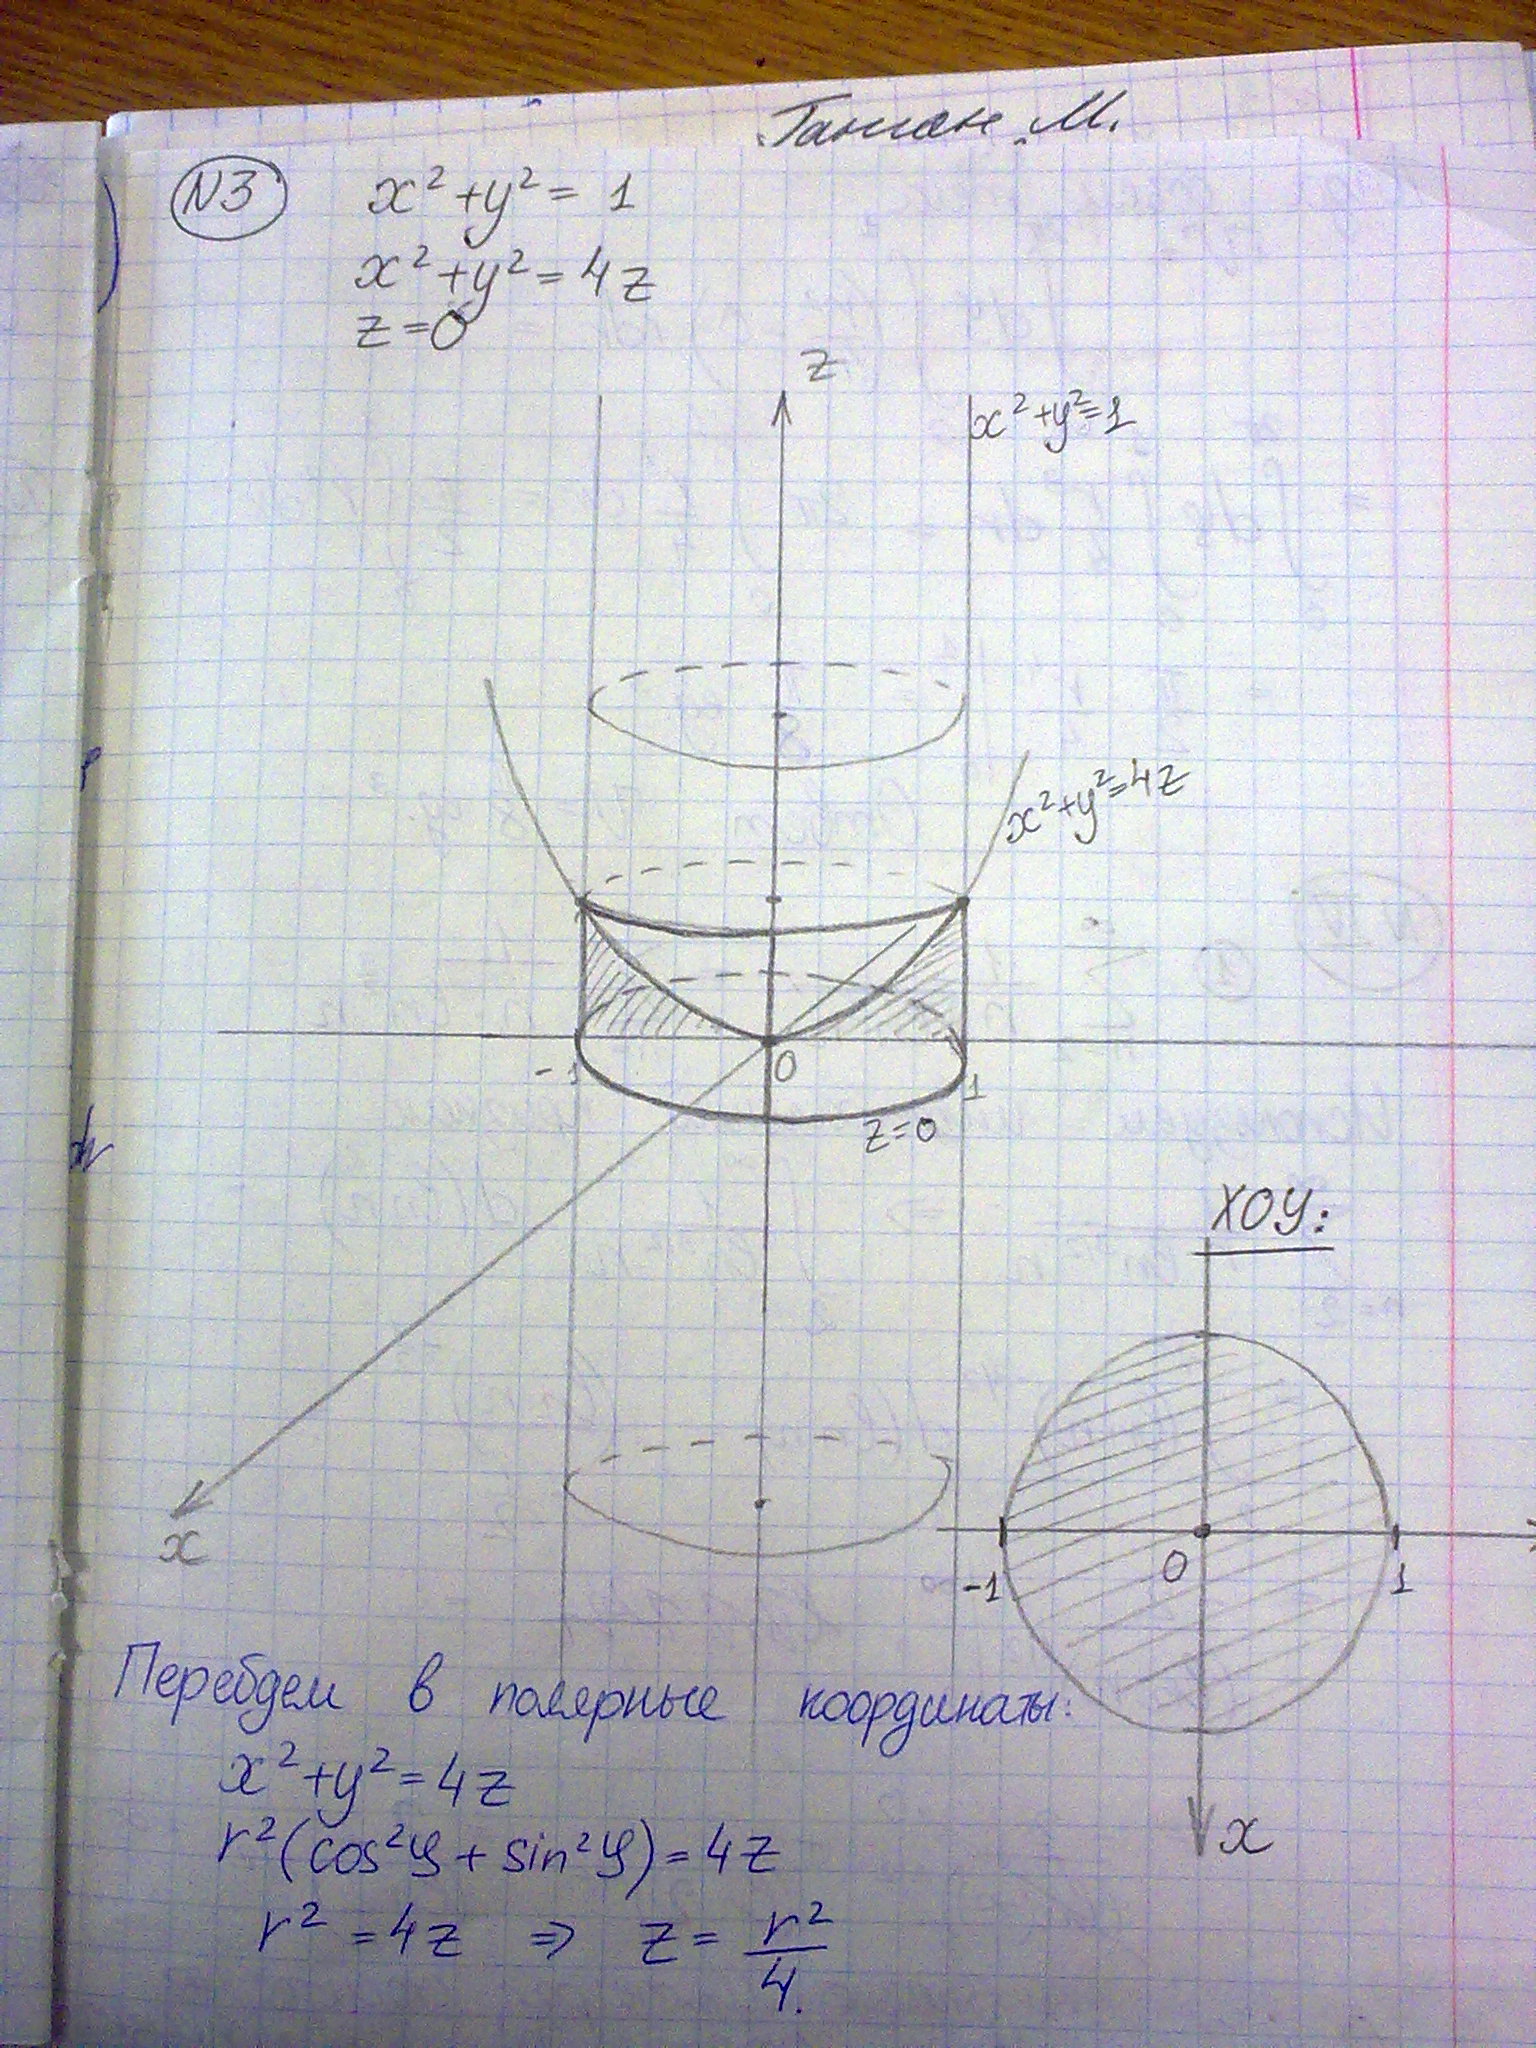 М.
N3
x²+y²=1
x²+y²=4z
z=0
z
x²+y²=1
x²+y²=4z
-1
0
1
z=0
x
XOY:
-1
0
1
x
Перейдем в полярные координаты:
x²+y²=4z
r²(cos²φ+sin²φ)=4z
r²=4z ⇒ z=r²/4.